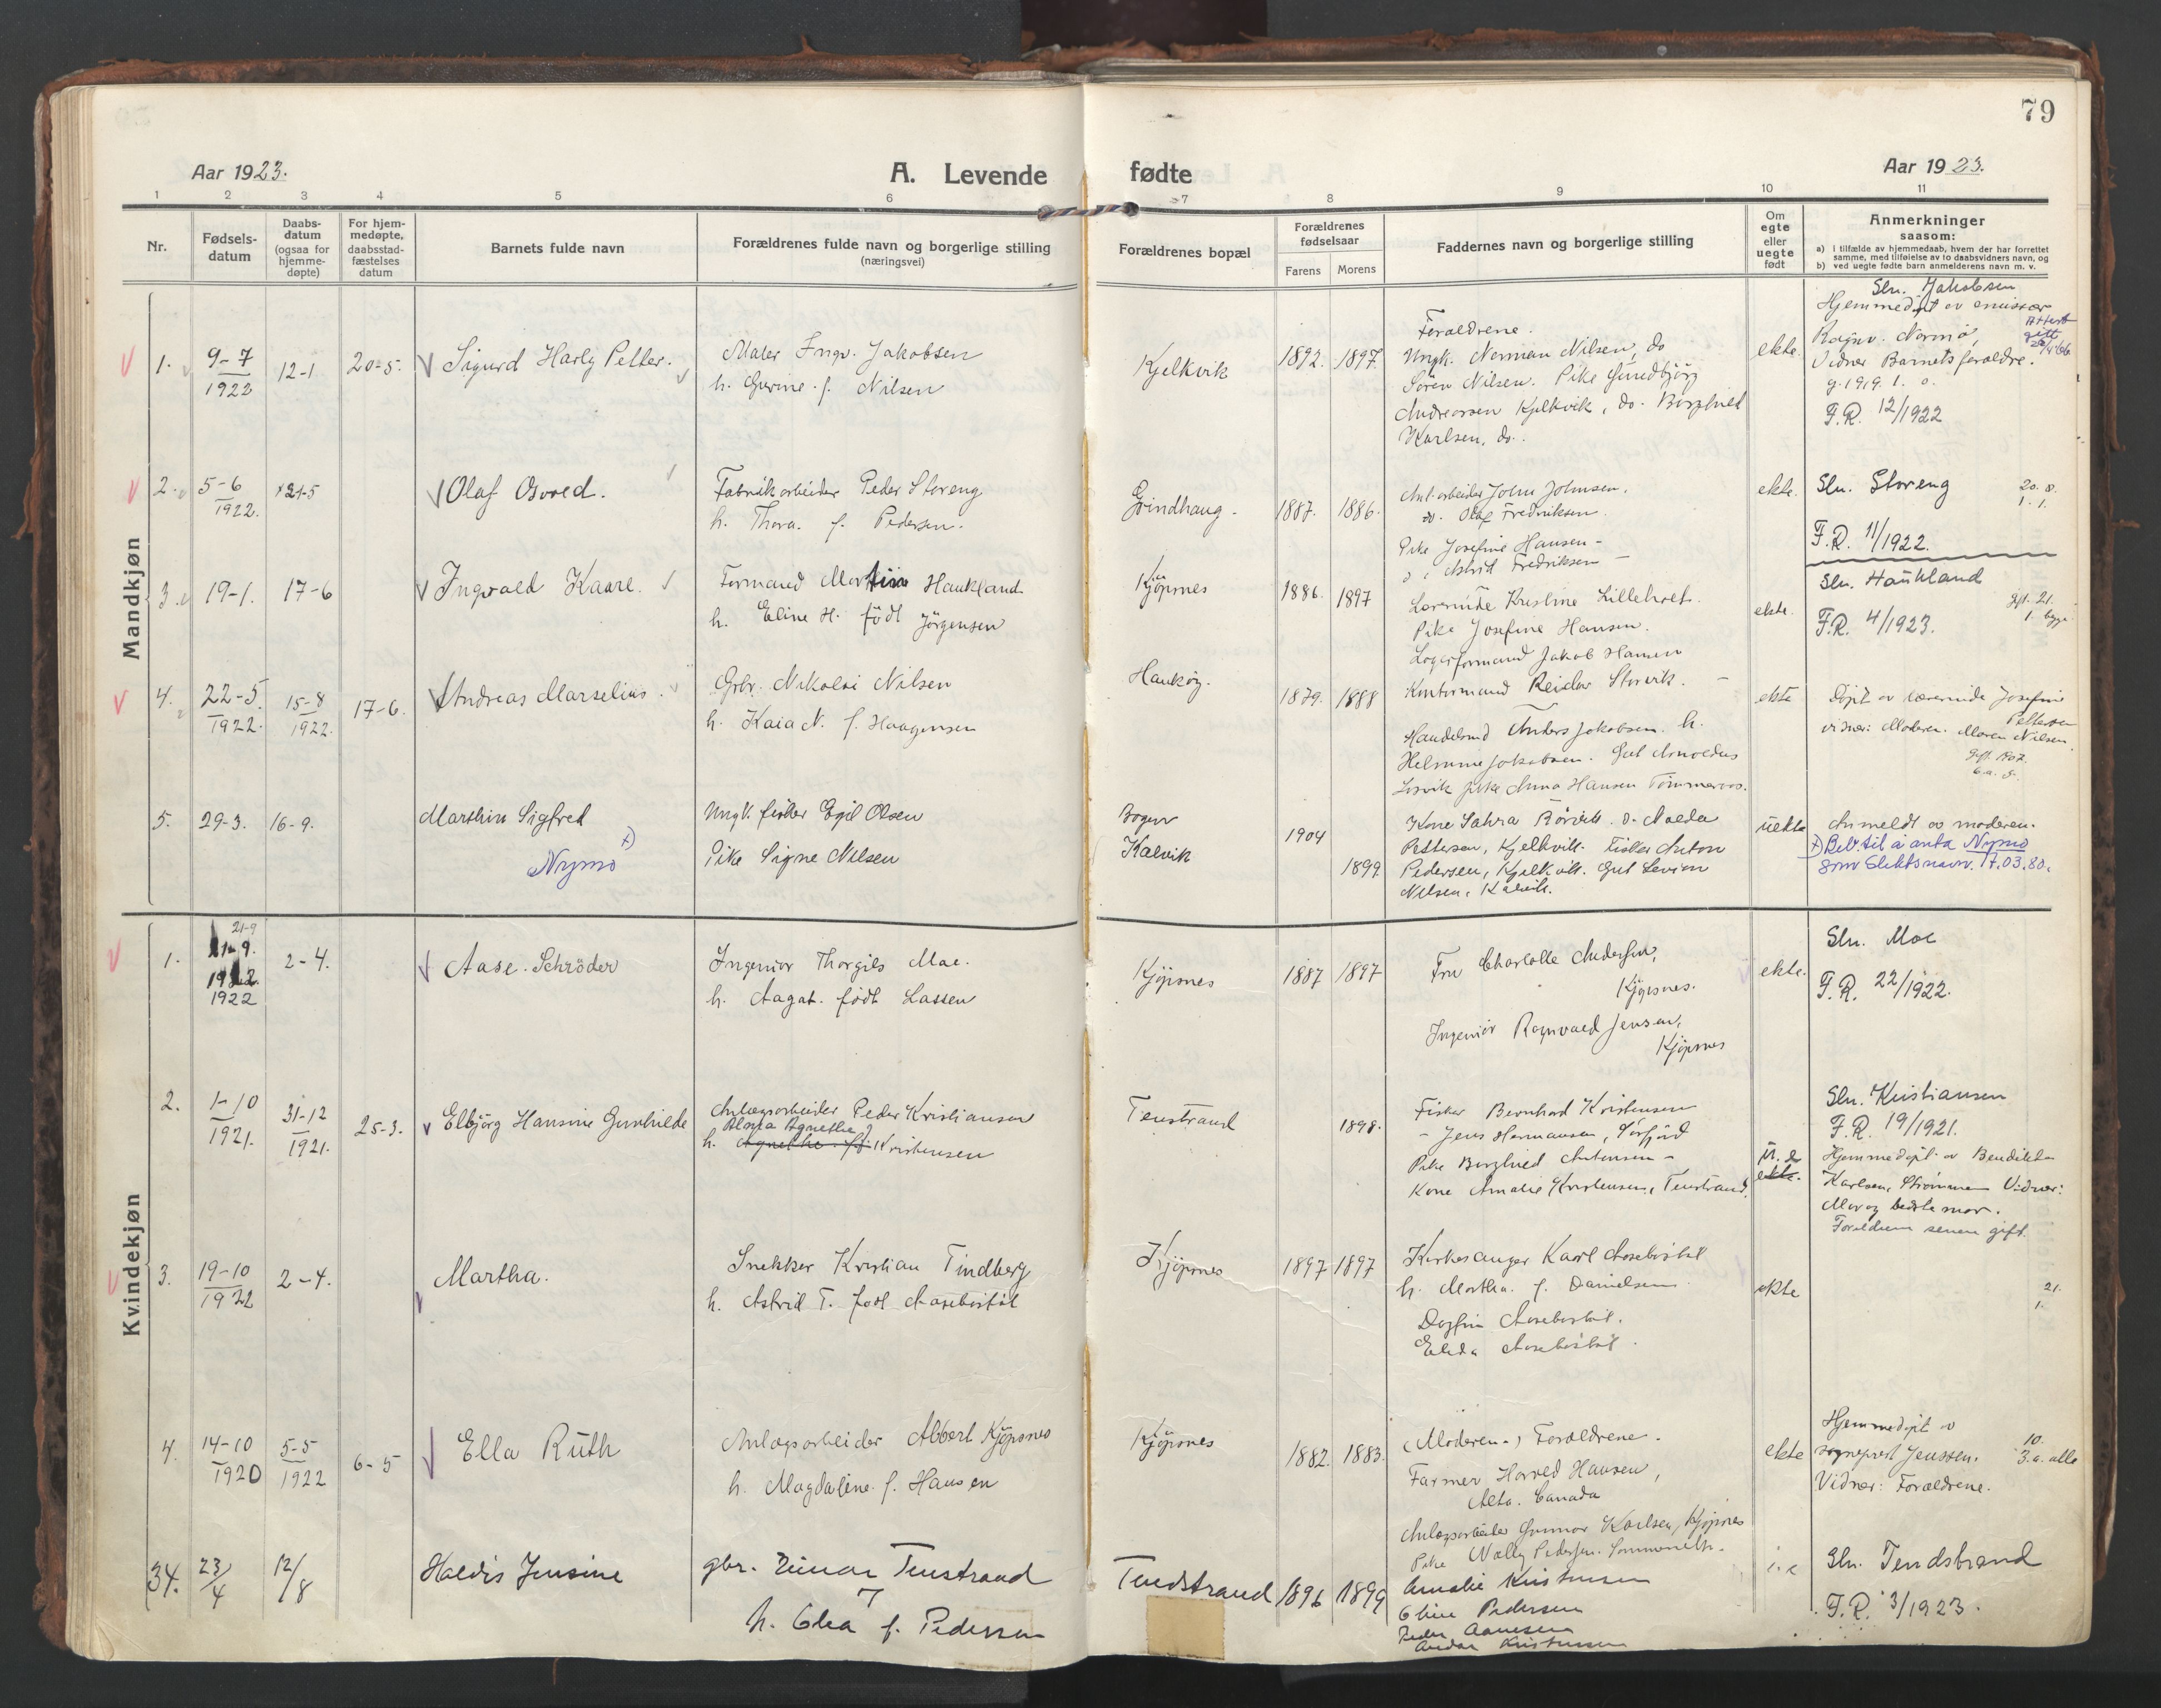 79
Aar 1923.
A. Levende fødte
Aar 1923.
1 2 3 4 5 6 7 8 9 10 11
Nr.
Fødsels-
datum
Daabs-
datum
(ogsaa for
hjemme-
døpte)
For hjem-
medøpte,
daabsstad-
fæstelses
datum
Barnets fulde navn
Forældrenes fulde navn og borgerlige stilling
(næringsvei)
Forældrenes bopæl
Forældrenes
fødselsaar
Farens Morens
Faddernes navn og borgerlige stilling
Om
egte
eller
uegte
født
Anmerkninger
saasom:
a) i tilfælde av hjemmedaab, hvem der har forrettet
samme, med tilføielse av to daabsvidners navn, og
b) ved uegte fødte barn anmelderens navn m. v.
Mandkjøn
1. 9-7
1922
12-1
20-5.
Sigurd Harly Petter.
Maler Ingv. Jakobsen
h. Gurine f. Nilsen
Kjelkvik
1892. 1897.
Foraldrene.
Ungk. Norman Nilsen, do
Sören Nilsen. Pike
Andreassen Kjelkvik, do. Borghild
Karlsen, do.
ekte.
Sln. Jakobsen
Hjemmedöpt av emissær
Ragnv. Normö,
Vidner Barnets foraldre.
g. 1919. 1. o.
F.R. 12/1922
2. 5-6
1922.
21-5
Olaf
Fabrikarbeider Peder Storeng
h. Thora. f. Pedersen.
Grindhaug -
1887. 1886.
Anl.arbeider John Johnsen.
do. Olaf Fredriksen
Pike Josefine Hansen -
Astrid Fredriksen -
ekte.
Sln. Storeng
20. 8.
1. 1.
F.R. 11/1922.
3. 19-1. 17-6
Ingvald Kaare.
Formand Martin Haukland
h. Eline H. född Jörgensen
Kjöpsnes
1886. 1897
Lærerinde Kristine Lilleholt.
Pike Josefine Hansen.
Lagerformand Jakob Hansen
Kontormand Reidar Storvik. -
ekte.
Sln. Haukland
Gift. 21.
F.R. 4/1923.
4. 22-5.
1922.
15-8
1922.
17-6.
Andreas Marselius.
Grbr. Nikolai Nilsen
h. Kaia N. f. Haagensen
Hauköy.
1879. 1888
Handelsmd Anders Jakobsen. h.
Helmine Jakobsen. Gut Arnoldus
Pike Anna Hansen Tömmernes.
ekte
Döpt av Lærerinde Josefine
Pettersen
vidner: Moderen. Maren Nilsen.
Gift 1907.
5. 29-3. 16-9.
Marthin Sigfred
Nymo x)
Ungk. fisker Egil Olsen
Pike Signe Nilsen
Bogen
Kalvik
1904
1899
Kone
Pettersen, Kjelkvik. Fisker Anton
Pedersen, Kjelkvik. Gut
Nilsen, Kalvik.
uekte
Anmeldt av moderen.
x) Bev. til å anta Nymo
som slektsnavn. 17.03.80.
Kvindekjøn
1. 21-9
21-9.
1922
1922
2-4.
Aase. Schröder
Ingeniör Thorgils Moe.
h. Aagot. född Lassen
Kjöpsnes
1887 1897
Fru Charlotte Andersen,
Kjöpsnes.
Ingeniör Ragnvald Jensen,
Kjöpsnes
ekte.
Sln. Moe
F.R. 22/1922.
2. 1-10
1921.
31-12
1921.
25-3.
Elbjörg Hansine Gunhilde
Anlægsarbeider Peder Kristiansen
Agnethe
h. Agnethe f. Kristensen
Tenstrand
1898.
Fisker Bernhard Kristensen
- Jens Hermansen, Sörfjord
Pike Borghild Antonsen -
Kone Amalie Kristensen, Tenstrand.
u. e
ekte.
Sln. Kristiansen
F.R. 19/1921.
Hjemmedöpt av Benedikte
Karlsen, Strömmen Vidner:
Mor og bedstemor.
Foraldrene senere gift.
3. 19-10
1922
2-4.
Martha.
Snekker Kristian Tindberg
h. Astrid T. född Aaseböstöl
Kjöpsnes
1897 1897
Kirkesanger Karl Aaseböstöl
h. Martha. f. Danielsen
Dagfin Aaseböstöl.
Aaseböstöl.
ekte
21.
1.
4. 14-10
1920
5-5
1922
6-5
Ella Ruth
Anlægsarbeider Albert Kjöpsnes
h. Magdalene f. Hansen
Kjöpsnes
1882. 1883.
(Moderen.) Foraldrene.
Farmer Harald Hansen,
Alta. Canada
Anlægsarbeider Gunnar Karlsen, Kjöpsnes
Pike Nally Pedersen.
ekte
Hjemmedöpt av
sogneprest Jenssen.
Vidner: Foraldrene.
10.
3. a. alle
34. 23/4 12/8
Haldis Jensine
gbr. Einar Tenstrand
h. Olea f. Pedersen
Tendstrand
1896 1899
Amalie Kristensen
Oline Pedersen
Peder Aanesen
Kristensen
Sln. Tendstrand
F.R. 3/1923.